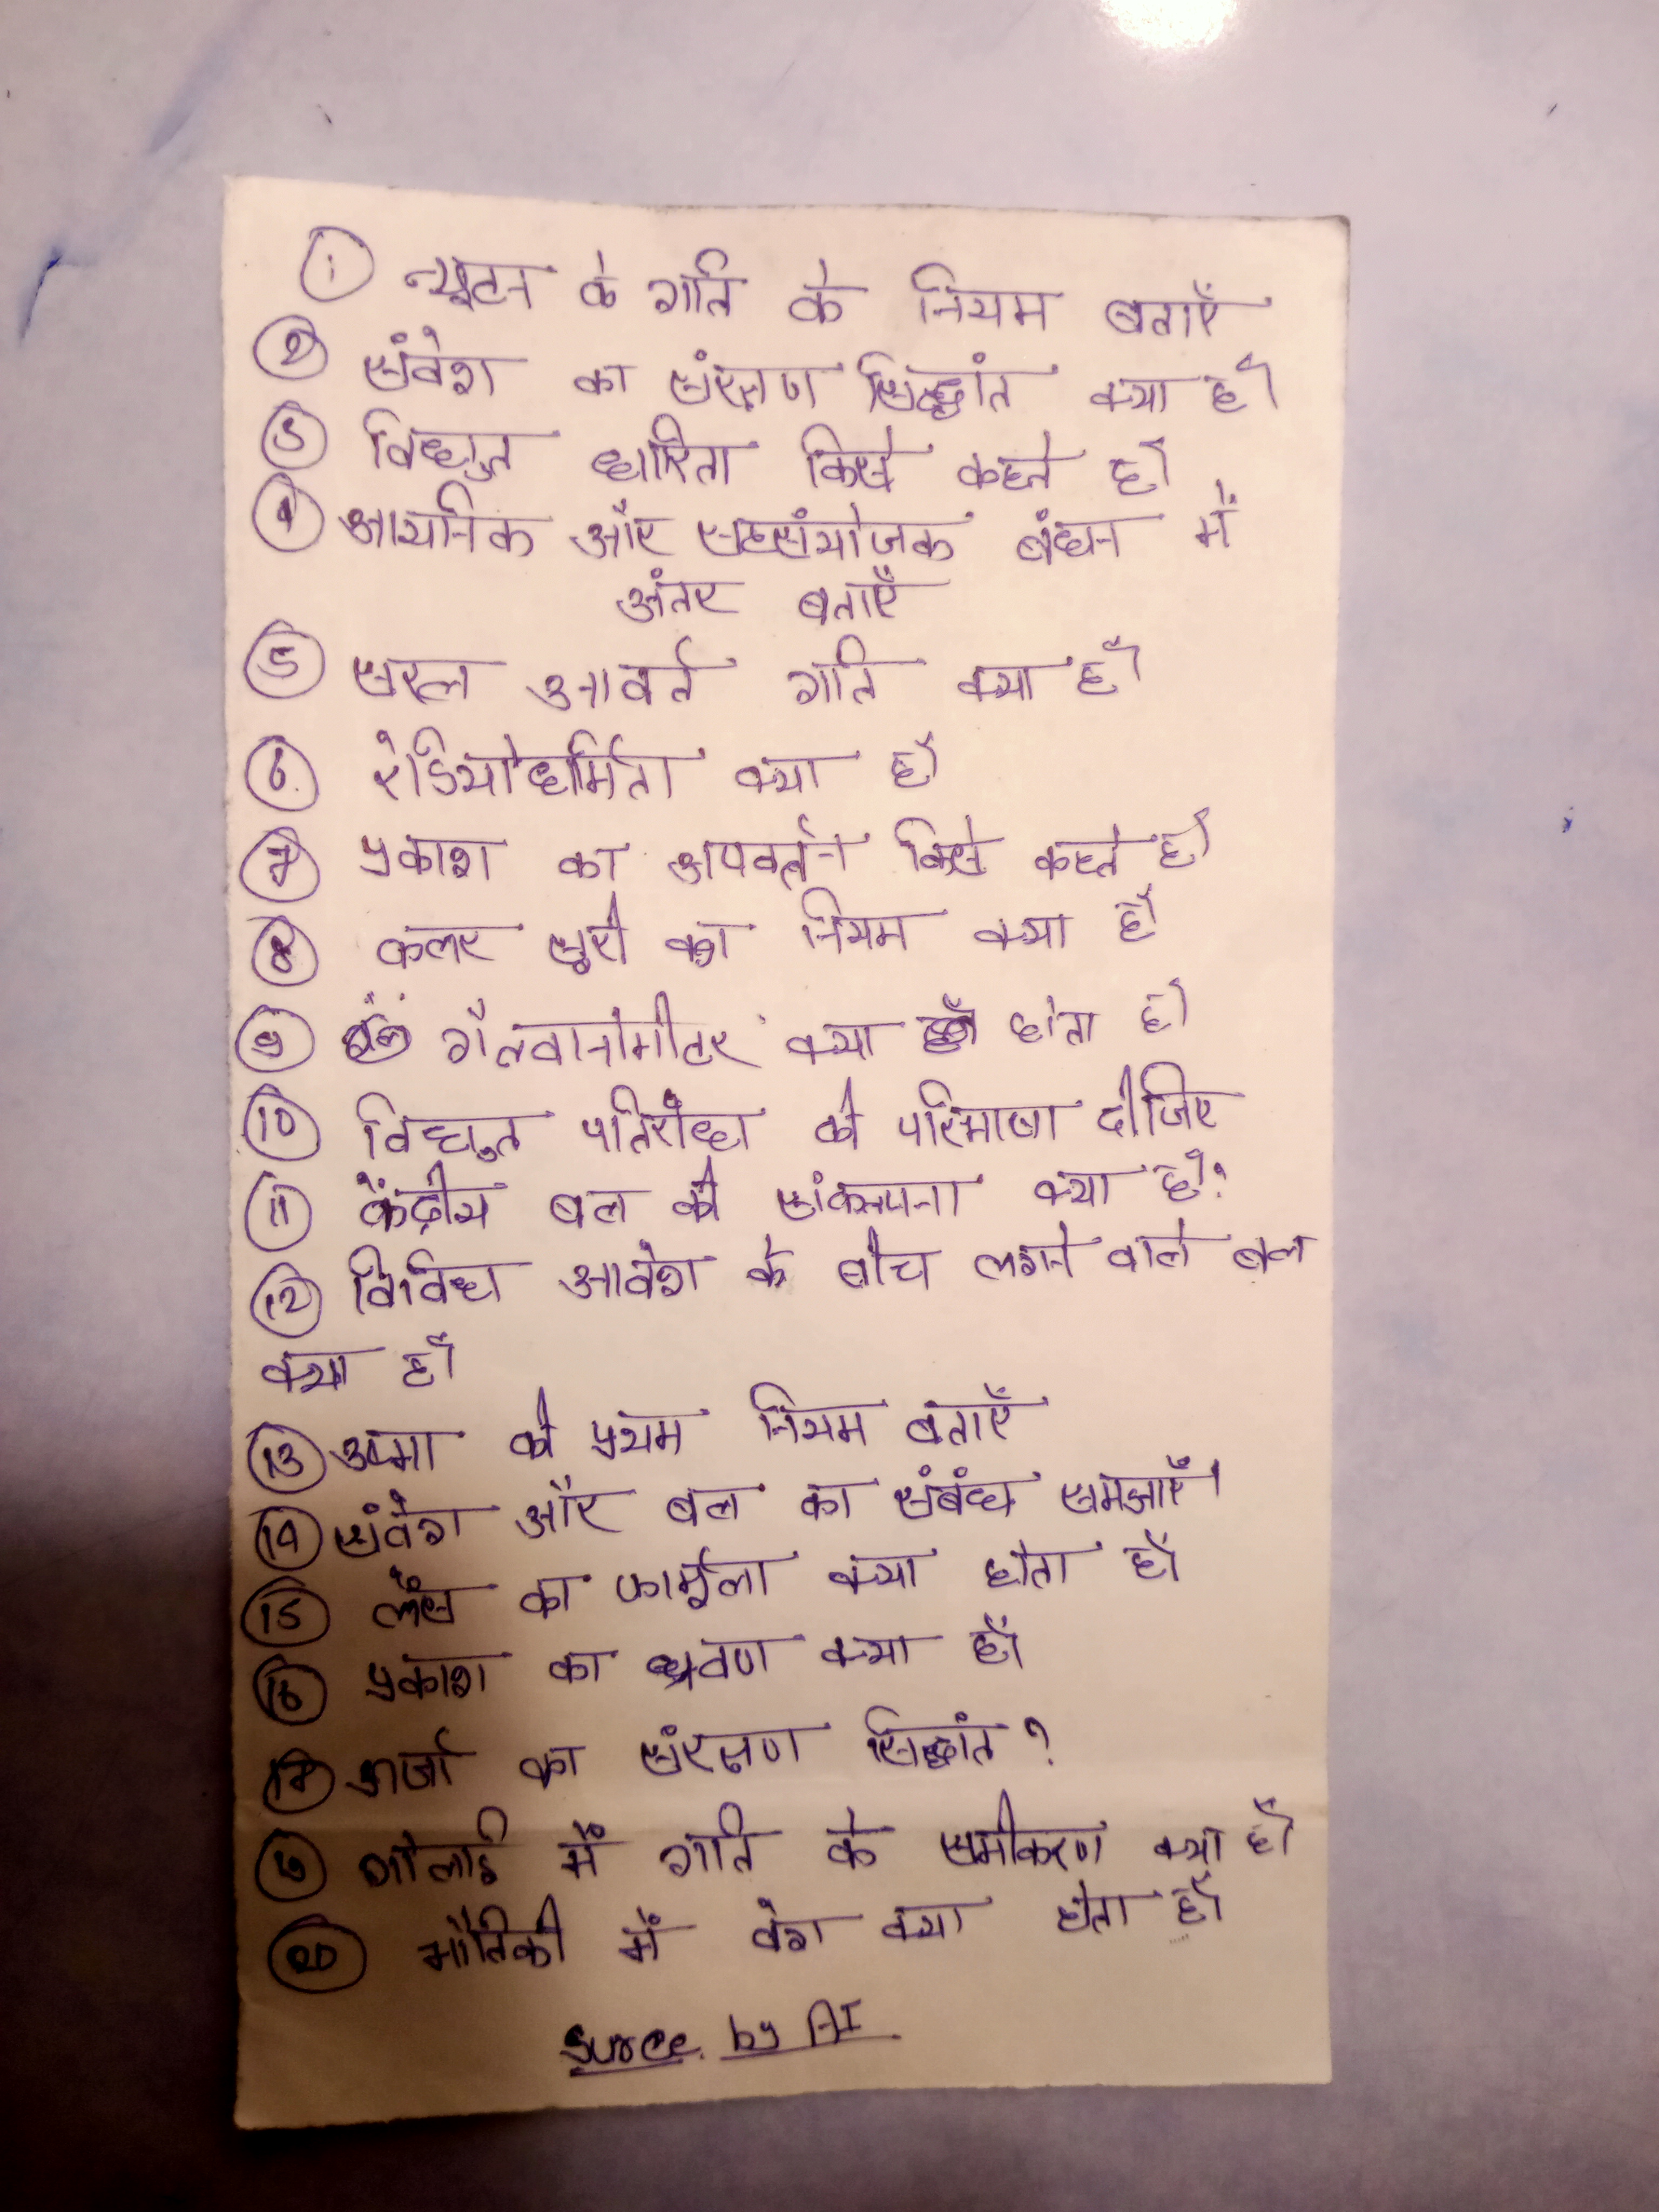 ① न्यूटन के गति के नियम बताएँ
② संवेग का संरक्षण सिद्धांत क्या है।
③ विद्युत धारिता किसे कहते है।
④ आयनिक और सहसंयोजक बंधन में
अंतर बताएँ
⑤ सरल आवर्त गति क्या है।
⑥ रेडियोधर्मिता क्या है
⑦ प्रकाश का अपवर्तन किसे कहते है।
⑧ कलर का नियम क्या है
⑨ गैलवानोमीटर क्या होता है।
⑩ विद्युत पतिरोध की परिभाषा दीजिए
⑪ केंद्रीय बल की संकल्पना क्या है?
⑫ विविध आवेश के बीच लगने वाले बल
क्या है।
⑬ उष्मा की प्रथम नियम बताएँ
⑭ संवेग और बल का संबंध समझाएँ।
⑮ लेंस का फार्मूला क्या होता है।
⑯ प्रकाश का ध्रुवण क्या है।
⑰ ऊर्जा का संरक्षण सिद्धांत ?
गोलाई में गति के समीकरण क्या है।
⑳ भौतिकी में वेग क्या होता है।
Surce by AI